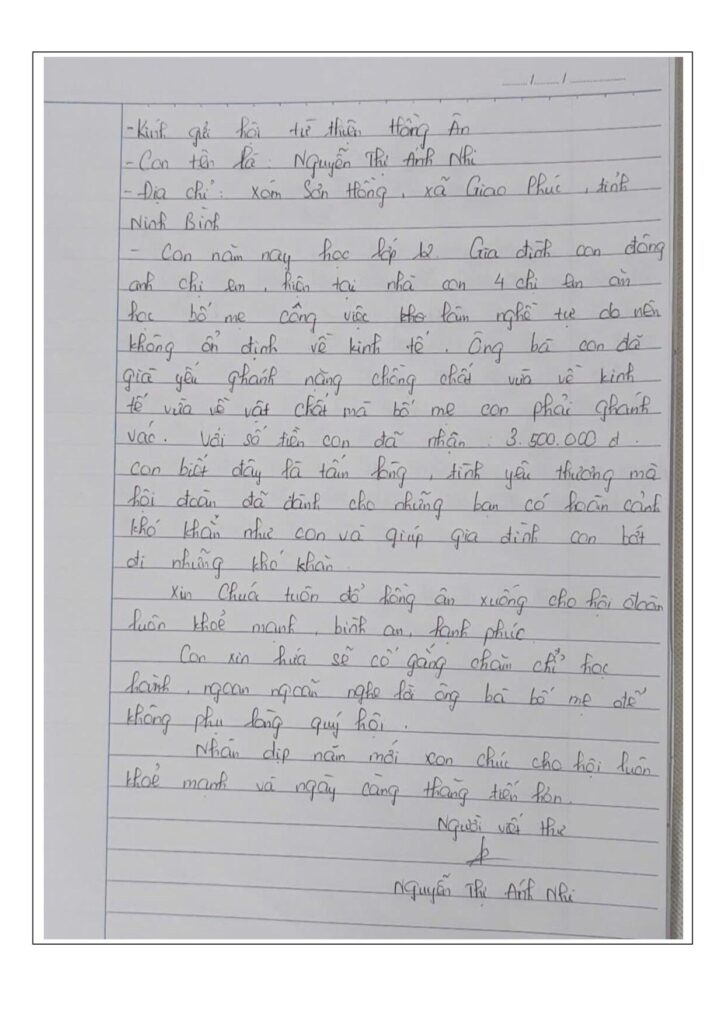 ...../...../..........
-Kính gửi hội từ thiện Hồng Ân
-Con tên là: Nguyễn Thị Ánh Nhi
-Địa chỉ: Xóm Sơn Hồng, xã Giao Phúc, tỉnh
Ninh Bình
- Con năm nay học lớp 12 Gia đình con đông
anh chị em, hiện tại nhà con 4 chị em ăn
học bố mẹ công việc làm nghề tự do nên
không ổn định về kinh tế. Ông bà con đã
già yếu ghánh nặng chồng chất vừa về kinh
tế vừa về vật chất mà bố mẹ con phải ghánh
vác. Với số tiền con đã nhận: 3.500.000 đ.
con biết đây là tấm lòng, tình yêu thương mà
hội đoàn đã dành cho những bạn có hoàn cảnh
khó khăn như con và giúp gia đình con bớt
đi những khó khăn
Xin Chúa tuôn đổ hồng ân xuống cho hội đoàn
luôn khoẻ mạnh, bình an, hạnh phúc
Con xin hứa sẽ cố gắng chăm chỉ học
hành, ngoan ngoãn nghe lời ông bà bố mẹ để
không phụ lòng quý hội.
Nhân dịp năm mới con chúc cho hội luôn
khoẻ mạnh và ngày càng thăng tiến hơn.
Người viết thư
Nguyễn Thị Ánh Nhi